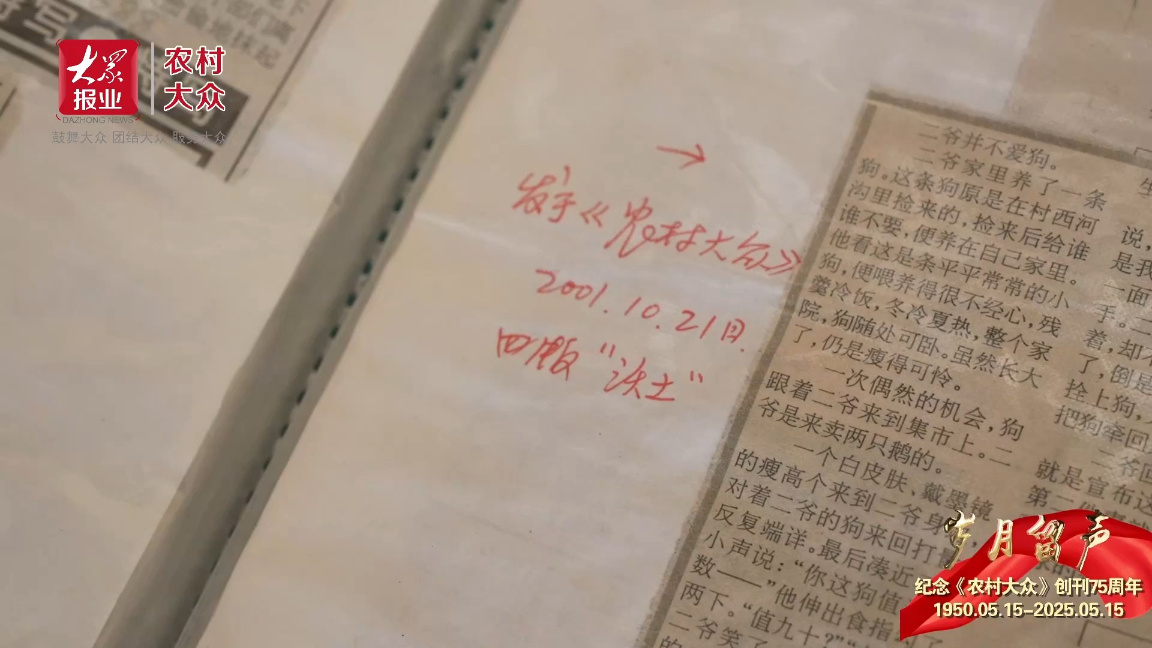 大众
报业
DAZHONG NEWS
农村
大众
鼓舞大众 团结大众 服务大众
→
发于《农村大众》
2001.10.21日.
四版“沃土”
二爷并不爱狗。
二爷家里养了一条
狗。这条狗原是在村西河
沟里捡来的，捡来后给谁
谁不要，便养在自己家里。
他看这是条平平常常的小
狗，便喂养得很不经心，残
羹冷饭，冬冷夏热，整个家
院，狗随处可卧。虽然长大
了，仍是瘦得可怜。
一次偶然的机会，狗
跟着二爷来到集市上。二
爷是来卖两只鹅的。
一个白皮肤、戴墨镜
的瘦高个来到二爷身
对着二爷的狗来回打
反复端详。最后凑近
小声说：“你这狗值
数——”他伸出食指
两下。“值九十？”
二爷笑了
说，
是我
一面
手。二
着，却不
了，倒是
拴上狗，
把狗牵回
二爷回
就是宣布这
第一
岁月留声
纪念《农村大众》创刊75周年
1950.05.15-2025.05.15